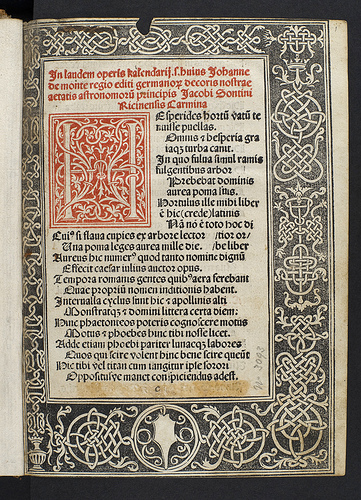 In laudem operis kalendarij. s. huius Johanne
de monte regio editi germanoꝝ decoris nostrae
aetatis astronomorū principis Jacobi Sentini
Ricinensis Carmina
HEsperides hortū vatū te
nuisse puellas.
Omnis & hesperia gra
iaqꝫ turba canit.
In quo fulua simul ramis
fulgentibus arbor
Prebebat dominis
aurea poma suis.
Hortulus ille mihi liber
ē hic (crede) latinis
Nā nō ē toto hoc di
Cuiꝰ si flaua cupies ex arbore lector /tior or/
Una poma leges aurea mille die. /be liber
Aureus hic numerꝰ quod tanto nomine dignū
Effecit caesar iulius auctor opus.
Tempora romanis gentes quibꝰ aera ferebant
Quae propriū nomen inditionis habent.
Interualla cyclus sunt hic & apollinis alti
Monstratqꝫ & domini littera certa diem:
Hinc phaetonteos poteris cognoscere motus
Motus & phoebes hinc tibi nosse licet.
Adde etiam phoebi pariter lunaeqꝫ labores
Quos qui scire volent hinc bene scire queūt
Hic tibi vel titan cum iangitur ipse sorori
Oppositusve manet conspiciendus adest.
c